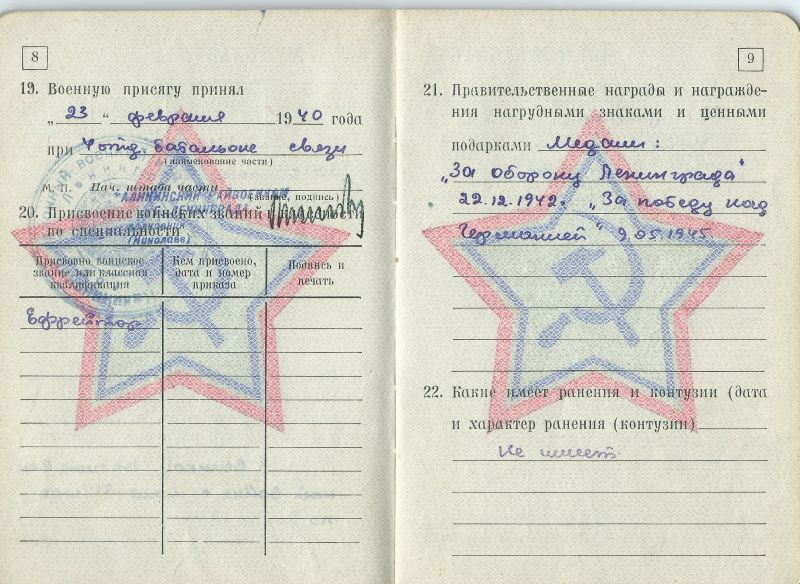 8
19. Военную присягу принял
„ 23 “ февраля 1940 года
при 4 отд. батальоне связи
(наименование части)
М. П. Нач. штаба части
(звание, подпись)
КАЛИНИНСКИЙ РАЙВОЕНКОМ
ЛЕНИНГРАДА
(Николаев)
20. Присвоение воинских званий
по специальности
Присвоено воинское звание или классная квалификация
Кем присвоено, дата и номер приказа
Подпись и печать
Ефрейтор
9
21. Правительственные награды и награжде-
ния нагрудными знаками и ценными
подарками Медали:
„За оборону Ленинграда“
22.12.1942. „За победу над
Германией“ 9.05.1945
22. Какие имеет ранения и контузии (дата
и характер ранения (контузии)
Не имеет.